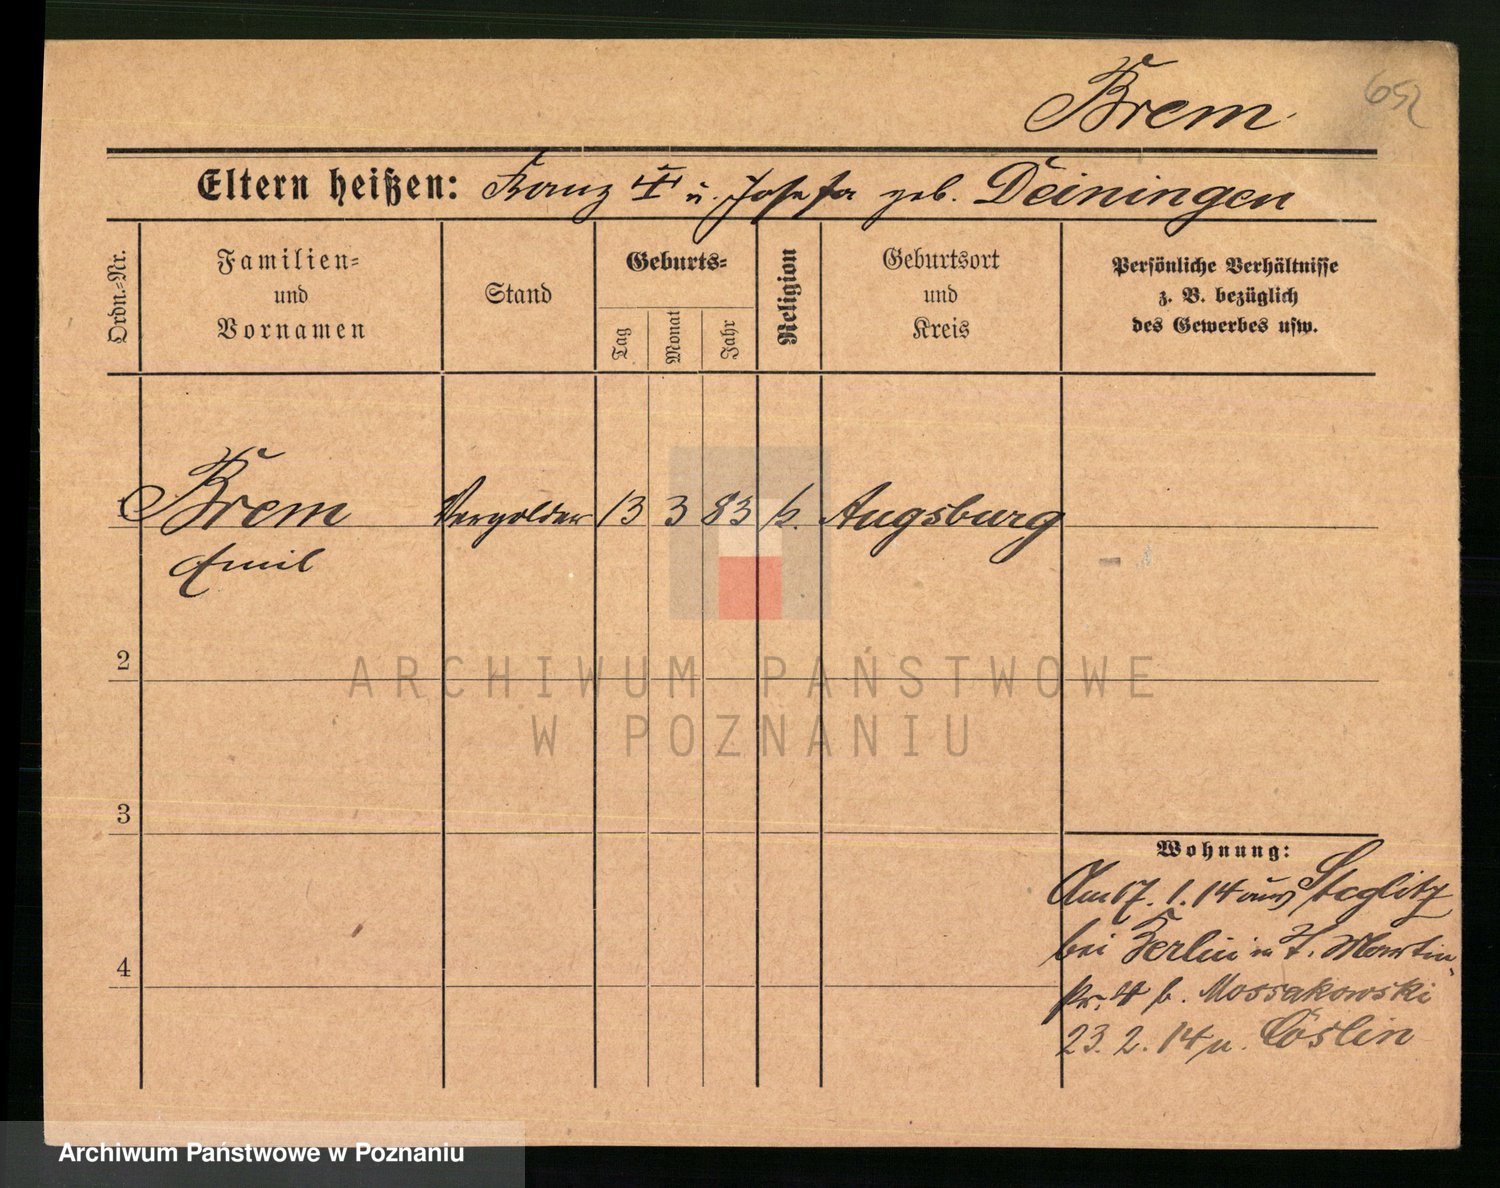 Brem
652
Eltern heißen: Franz ♰ u. Josefa geb. Deiningen
Ordn.-Nr.
Familien-
und
Vornamen
Stand
Geburts-
Tag
Monat
Jahr
Religion
Geburtsort
und
Kreis
Persönliche Verhältnisse
z. B. bezüglich
des Gewerbes usw.
1 Brem Vergolder 13 3 83 k. Augsburg
Emil
2
3
4
Wohnung:
Am 17. 1. 14 aus Steglitz
bei Berlin n. St. Martin-
str. 4 b. Mossakowski
23. 2. 14 n. Cöslin
ARCHIWUM PAŃSTWOWE
W POZNANIU
Archiwum Państwowe w Poznaniu